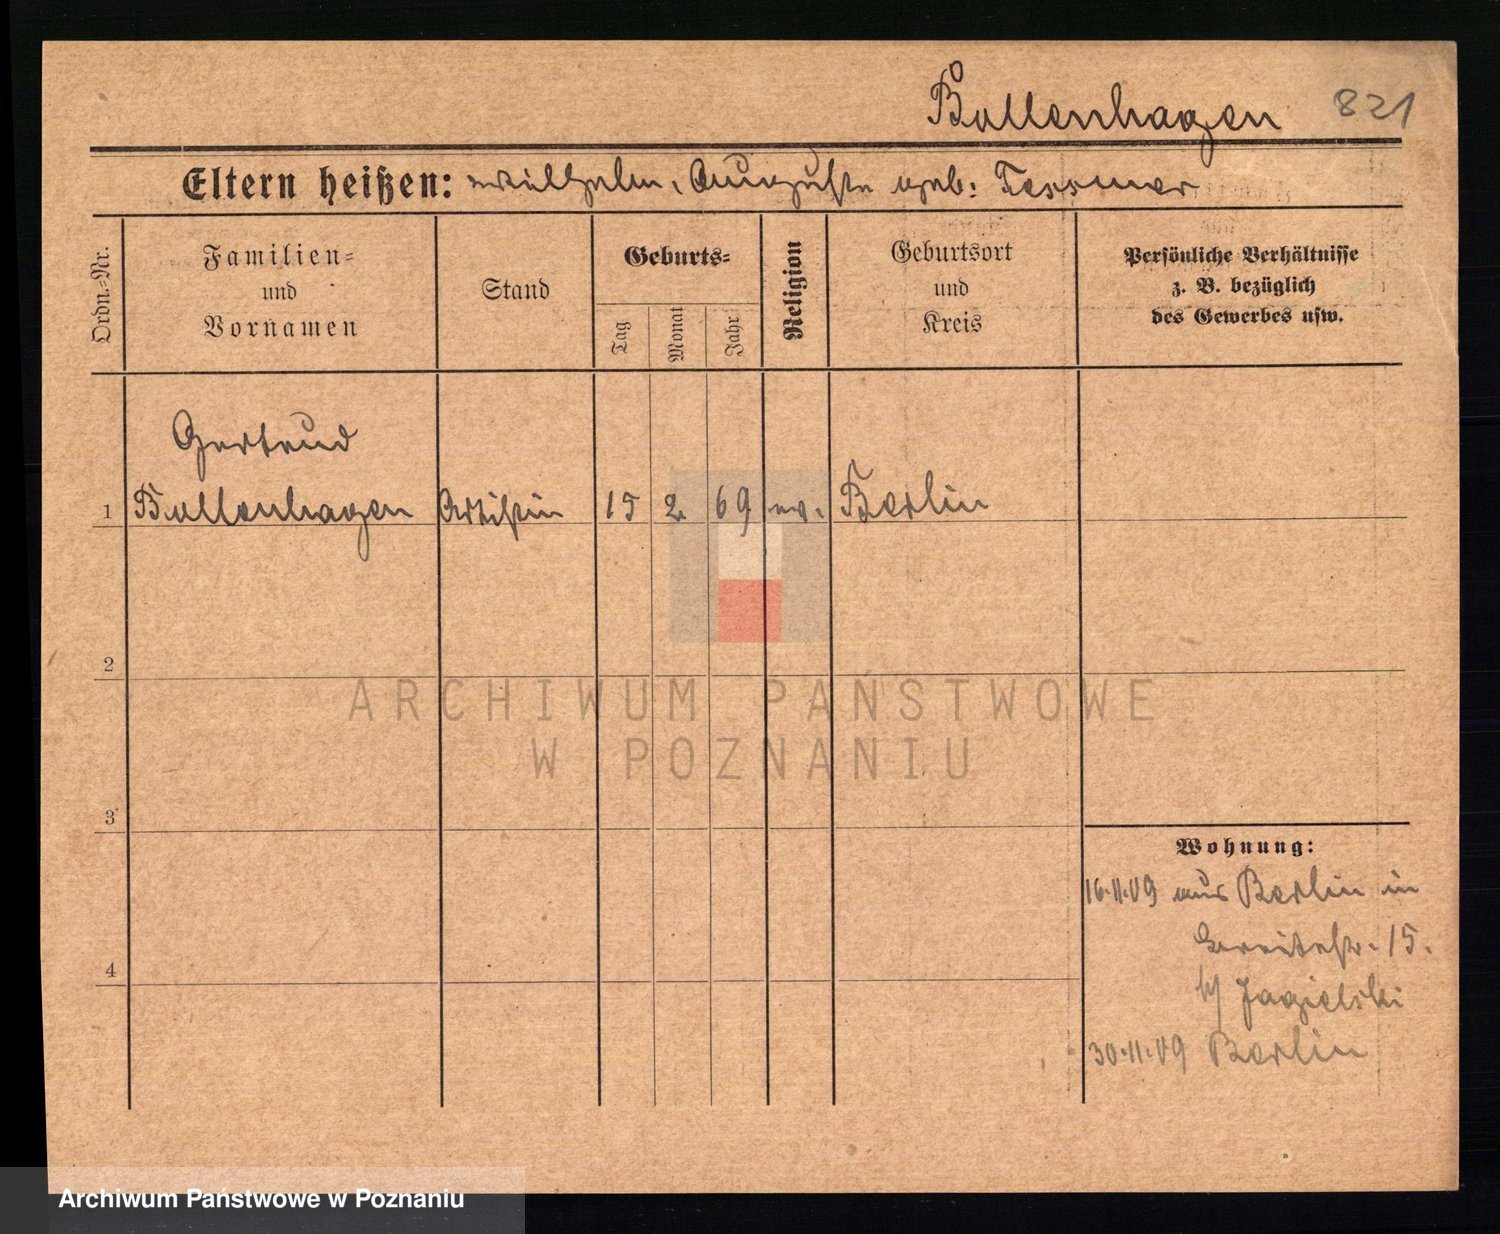 Bollenhagen 821
Eltern heißen: Wilhelm, Auguste geb: Tessmer
Ordn.-Nr.
Familien-
und
Vornamen
Stand
Geburts-
Tag
Monat
Jahr
Religion
Geburtsort
und
Kreis
Persönliche Verhältnisse
z. B. bezüglich
des Gewerbes usw.
Gertrud
1 Bollenhagen Artistin 15 2 69 ev. Berlin
2
3
4
Wohnung:
16.11.09 aus Berlin in
Breitestr. 15.
b/ Jagielski
30.11.09 Berlin
ARCHIWUM PAŃSTWOWE
W POZNANIU
Archiwum Państwowe w Poznaniu